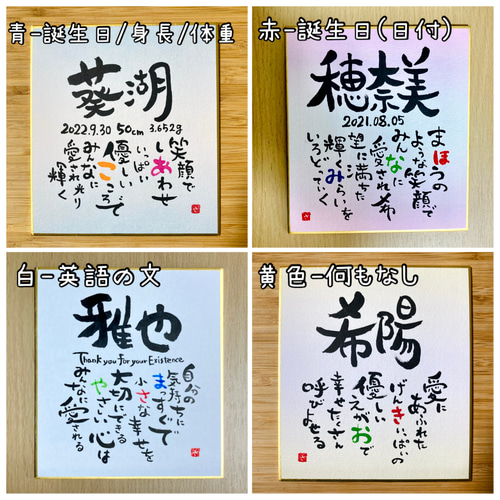 青-誕生日/身長/体重
葵湖
2022.9.30 50cm 3.652g
笑顔で
しあわせ
いっぱい
優しい
こころで
みんなに
愛され光り
輝く
赤-誕生日(日付)
穂奈美
2021.08.05
まほうの
ような笑顔で
みんなに
愛され希
望に満ちた
輝くみらいを
いろどっていく
白-英語の文
雅也
Thank you for your Existence
自分の
気持ちに
まっすぐで
小さな幸せを
大切にできる
やさしい心は
みんなに
愛される
黄色-何もなし
希陽
愛に
あふれた
げんきいっぱいの
優しい
えがおで
幸せたくさん
呼びよせる